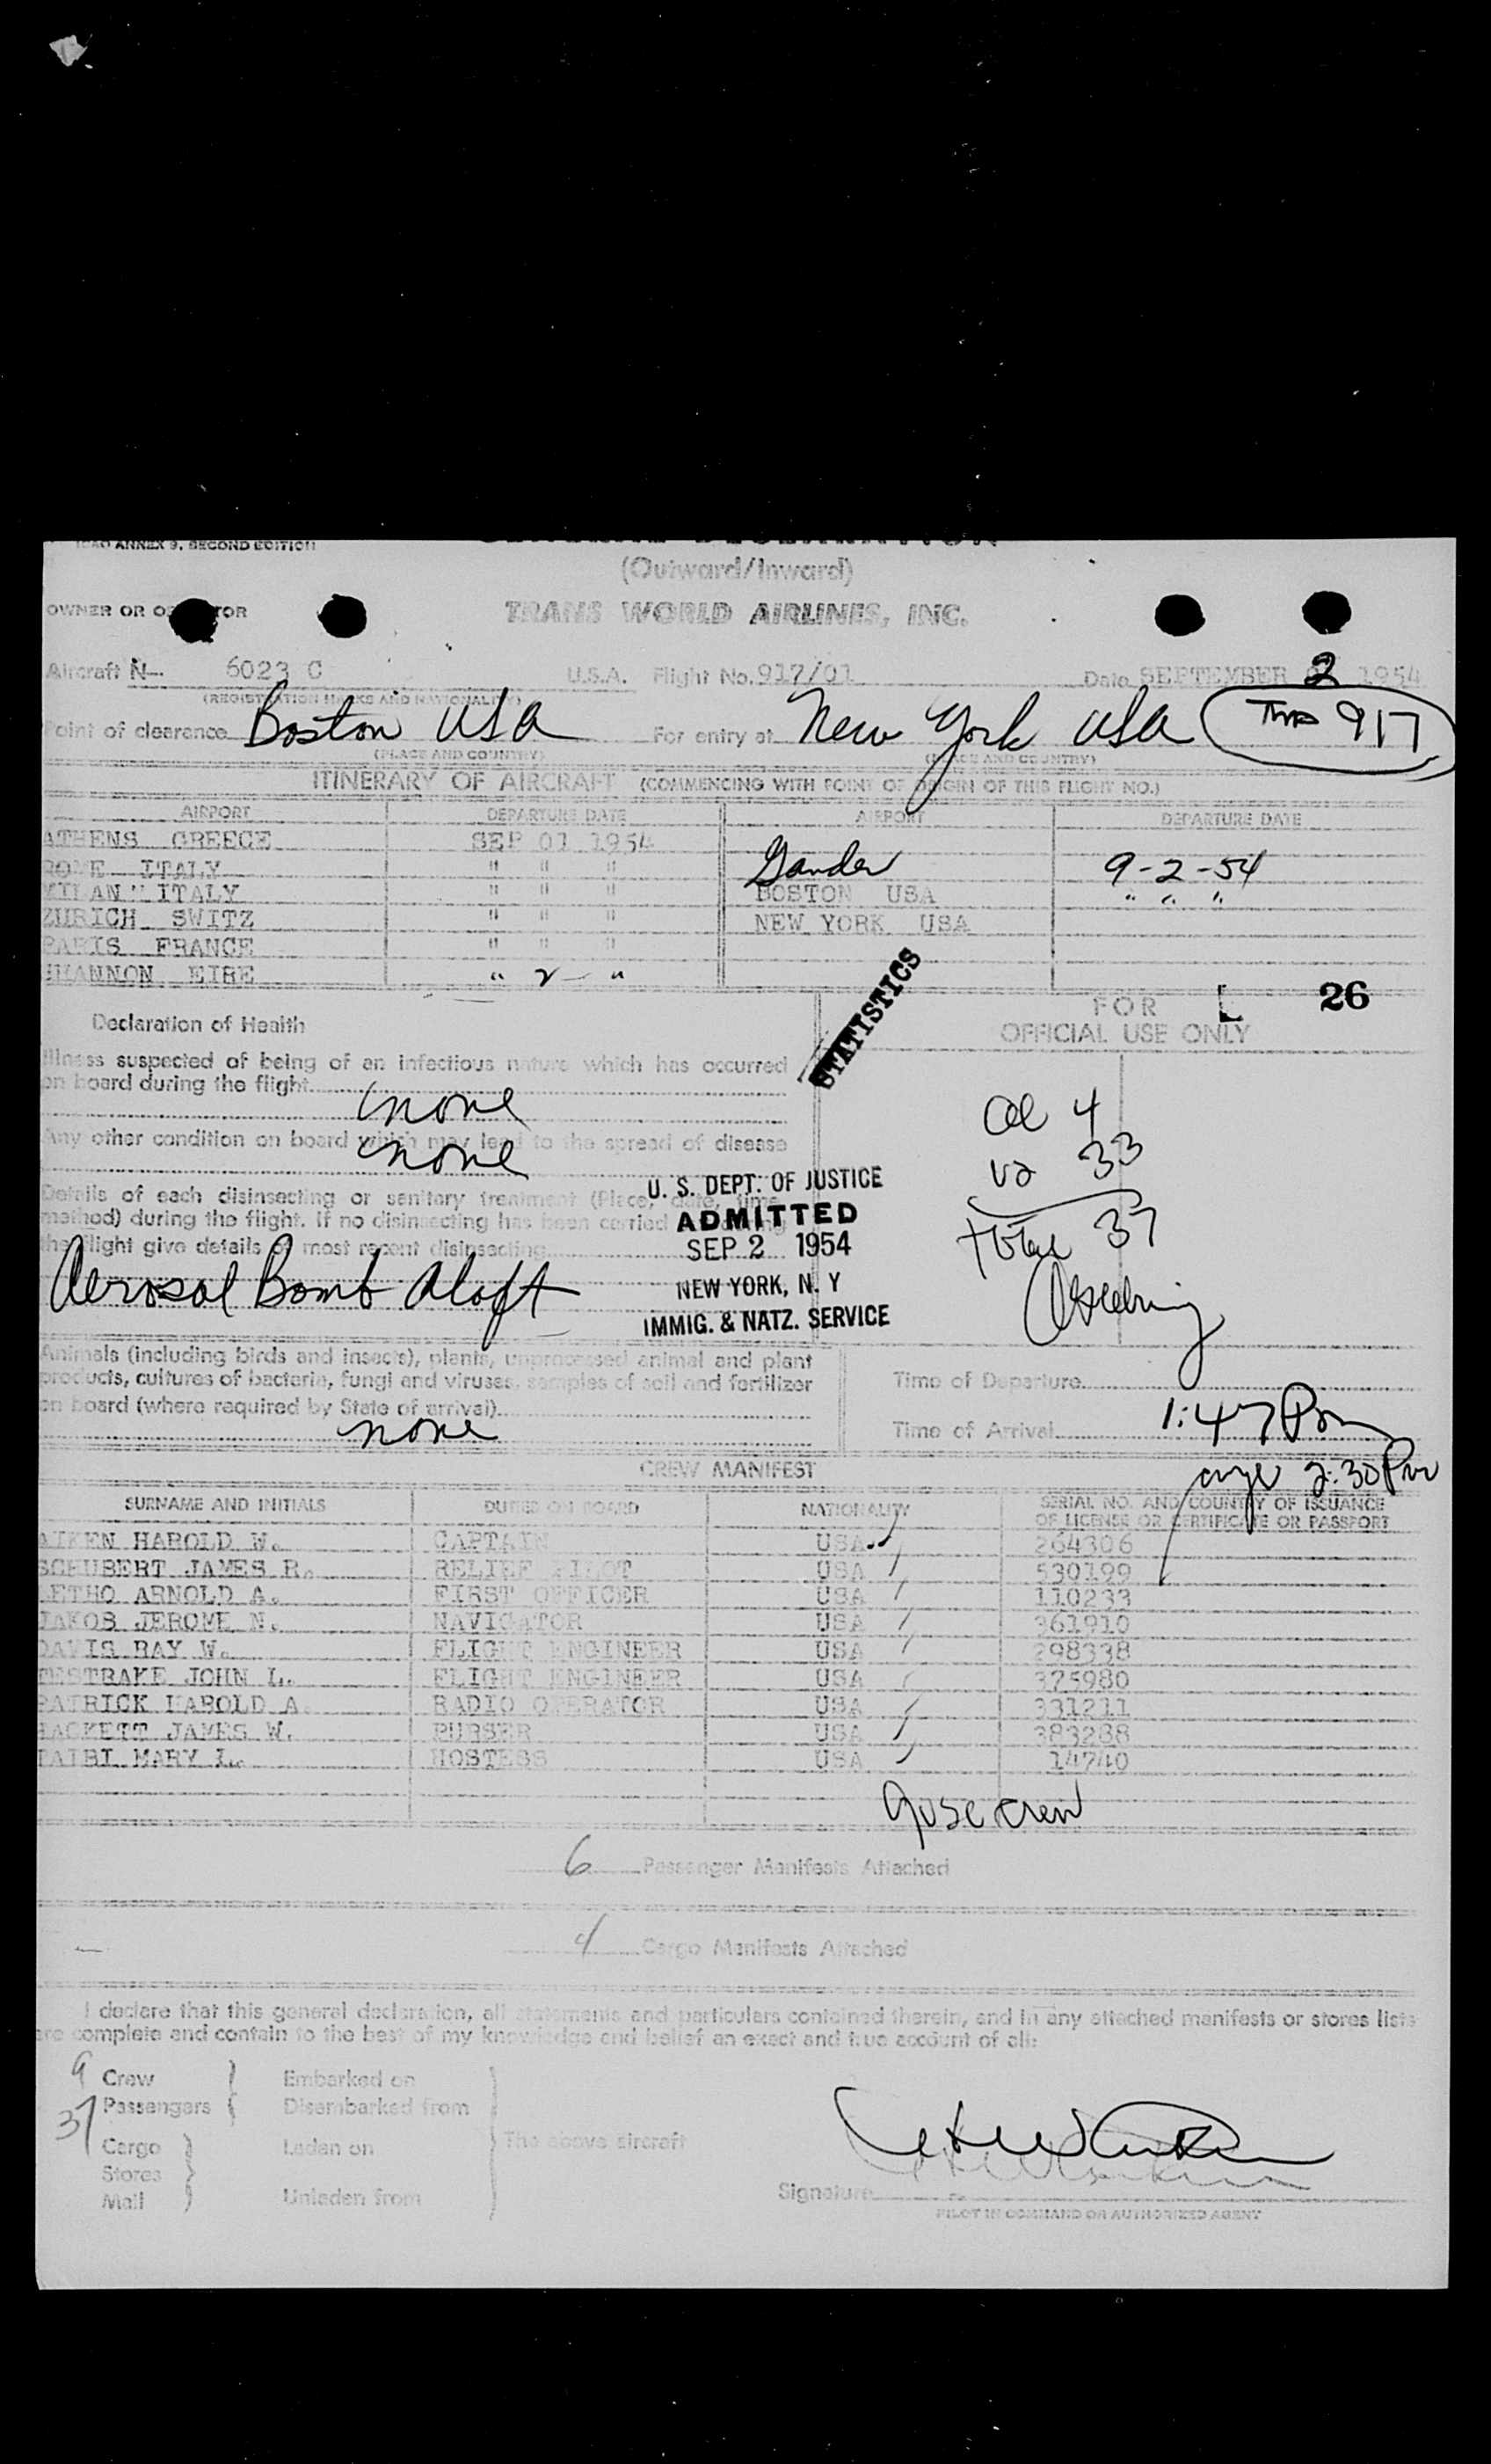 ANNEX 9, SECOND EDITION
(Outward/Inward)
OWNER OR OPERATOR TRANS WORLD AIRLINES, INC.
Aircraft N- 6023 C U.S.A. Flight No. 917/01 Date SEPTEMBER 2 1954
(REGISTRATION MARKS AND NATIONALITY)
Point of clearance Boston USA For entry at New York USA TWA 917
(PLACE AND COUNTRY) (PLACE AND COUNTRY)
ITINERARY OF AIRCRAFT (COMMENCING WITH POINT OF ORIGIN OF THIS FLIGHT NO.)
AIRPORT DEPARTURE DATE AIRPORT DEPARTURE DATE
ATHENS GREECE SEP 01 1954
ROME ITALY " " " Gander 9-2-54
MILAN ITALY " " " BOSTON USA " " "
ZURICH SWITZ " " " NEW YORK USA
PARIS FRANCE " " "
SHANNON EIRE " 2 "
STATISTICS
FOR L 26
OFFICIAL USE ONLY
Declaration of Health
Illness suspected of being of an infectious nature which has occurred
on board during the flight
none
Any other condition on board which may lead to the spread of disease
none
Details of each disinsecting or sanitary treatment (Place, date, time,
method) during the flight. If no disinsecting has been carried
the flight give details of most recent disinsecting
Aerosol Bomb Aloft
U. S. DEPT. OF JUSTICE
ADMITTED
SEP 2 1954
NEW YORK, N. Y
IMMIG. & NATZ. SERVICE
4
33
total 37
Animals (including birds and insects), plants, unprocessed animal and plant
products, cultures of bacteria, fungi and viruses, samples of soil and fertilizer
on board (where required by State of arrival)
none
Time of Departure
Time of Arrival 1:47 Pm
2:30 Pm
CREW MANIFEST
SURNAME AND INITIALS DUTIES ON BOARD NATIONALITY SERIAL NO. AND COUNTRY OF ISSUANCE
OF LICENSE OR CERTIFICATE OR PASSPORT
AIKEN HAROLD W. CAPTAIN USA 264306
SCHUBERT JAMES R. RELIEF PILOT USA 530199
ARNOLD A. FIRST OFFICER USA 110233
JAKOS JEROME N. NAVIGATOR USA 361910
DAVIS RAY W. FLIGHT ENGINEER USA 298338
TESTRAKE JOHN L. FLIGHT ENGINEER USA 375980
PATRICK HAROLD A. RADIO OPERATOR USA 331211
HACKETT JAMES W. PURSER USA 383288
MARY L. HOSTESS USA 147410
crew
6 Passenger Manifests Attached
4 Cargo Manifests Attached
I declare that this general declaration, all statements and particulars contained therein, and in any attached manifests or stores lists
are complete and contain to the best of my knowledge and belief an exact and true account of all:
9 Crew Embarked on
37 Passengers Disembarked from
Cargo Laden on The above aircraft
Stores
Mail Unladen from
Signature
PILOT IN COMMAND OR AUTHORIZED AGENT